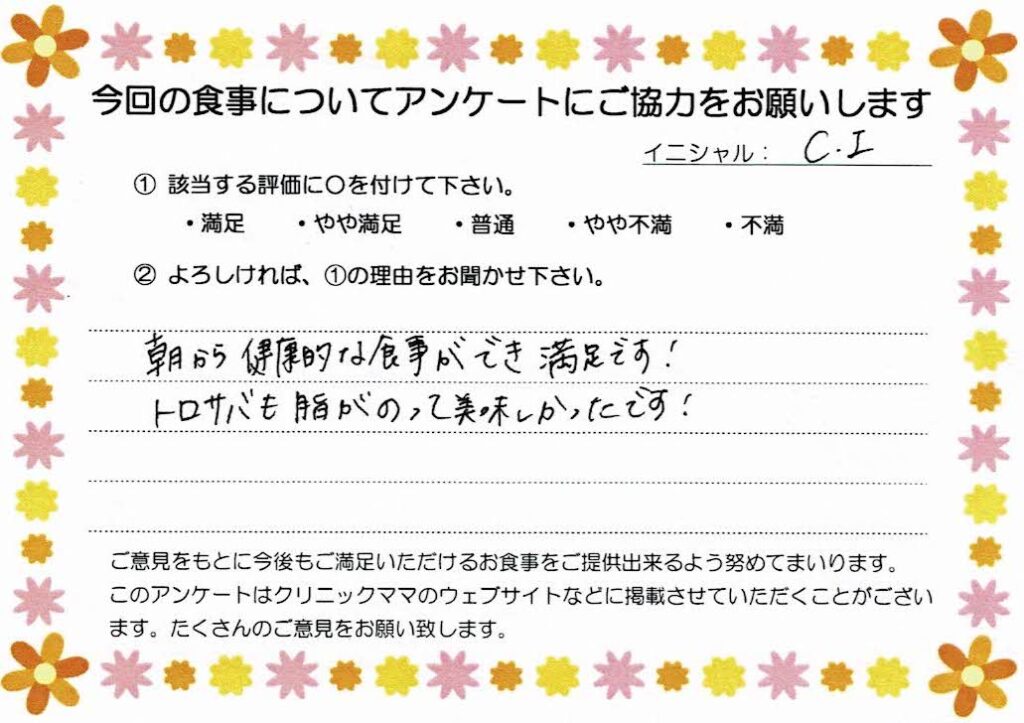 今回の食事についてアンケートにご協力をお願いします
イニシャル： C.I
① 該当する評価に〇を付けて下さい。
・満足 ・やや満足 ・普通 ・やや不満 ・不満
② よろしければ、①の理由をお聞かせ下さい。
朝から健康的な食事ができ満足です！
トロサバも脂がのって美味しかったです！
ご意見をもとに今後もご満足いただけるお食事をご提供出来るよう努めてまいります。
このアンケートはクリニックママのウェブサイトなどに掲載させていただくことがござい
ます。たくさんのご意見をお願い致します。